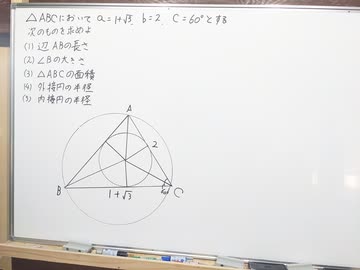 △ABCにおいて a=1+√3, b=2 C=60°とする
次のものを求めよ
(1) 辺ABの長さ
(2) ∠Bの大きさ
(3) △ABCの面積
(4) 外接円の半径
(5) 内接円の半径
A
2
B
1+√3
60°
C